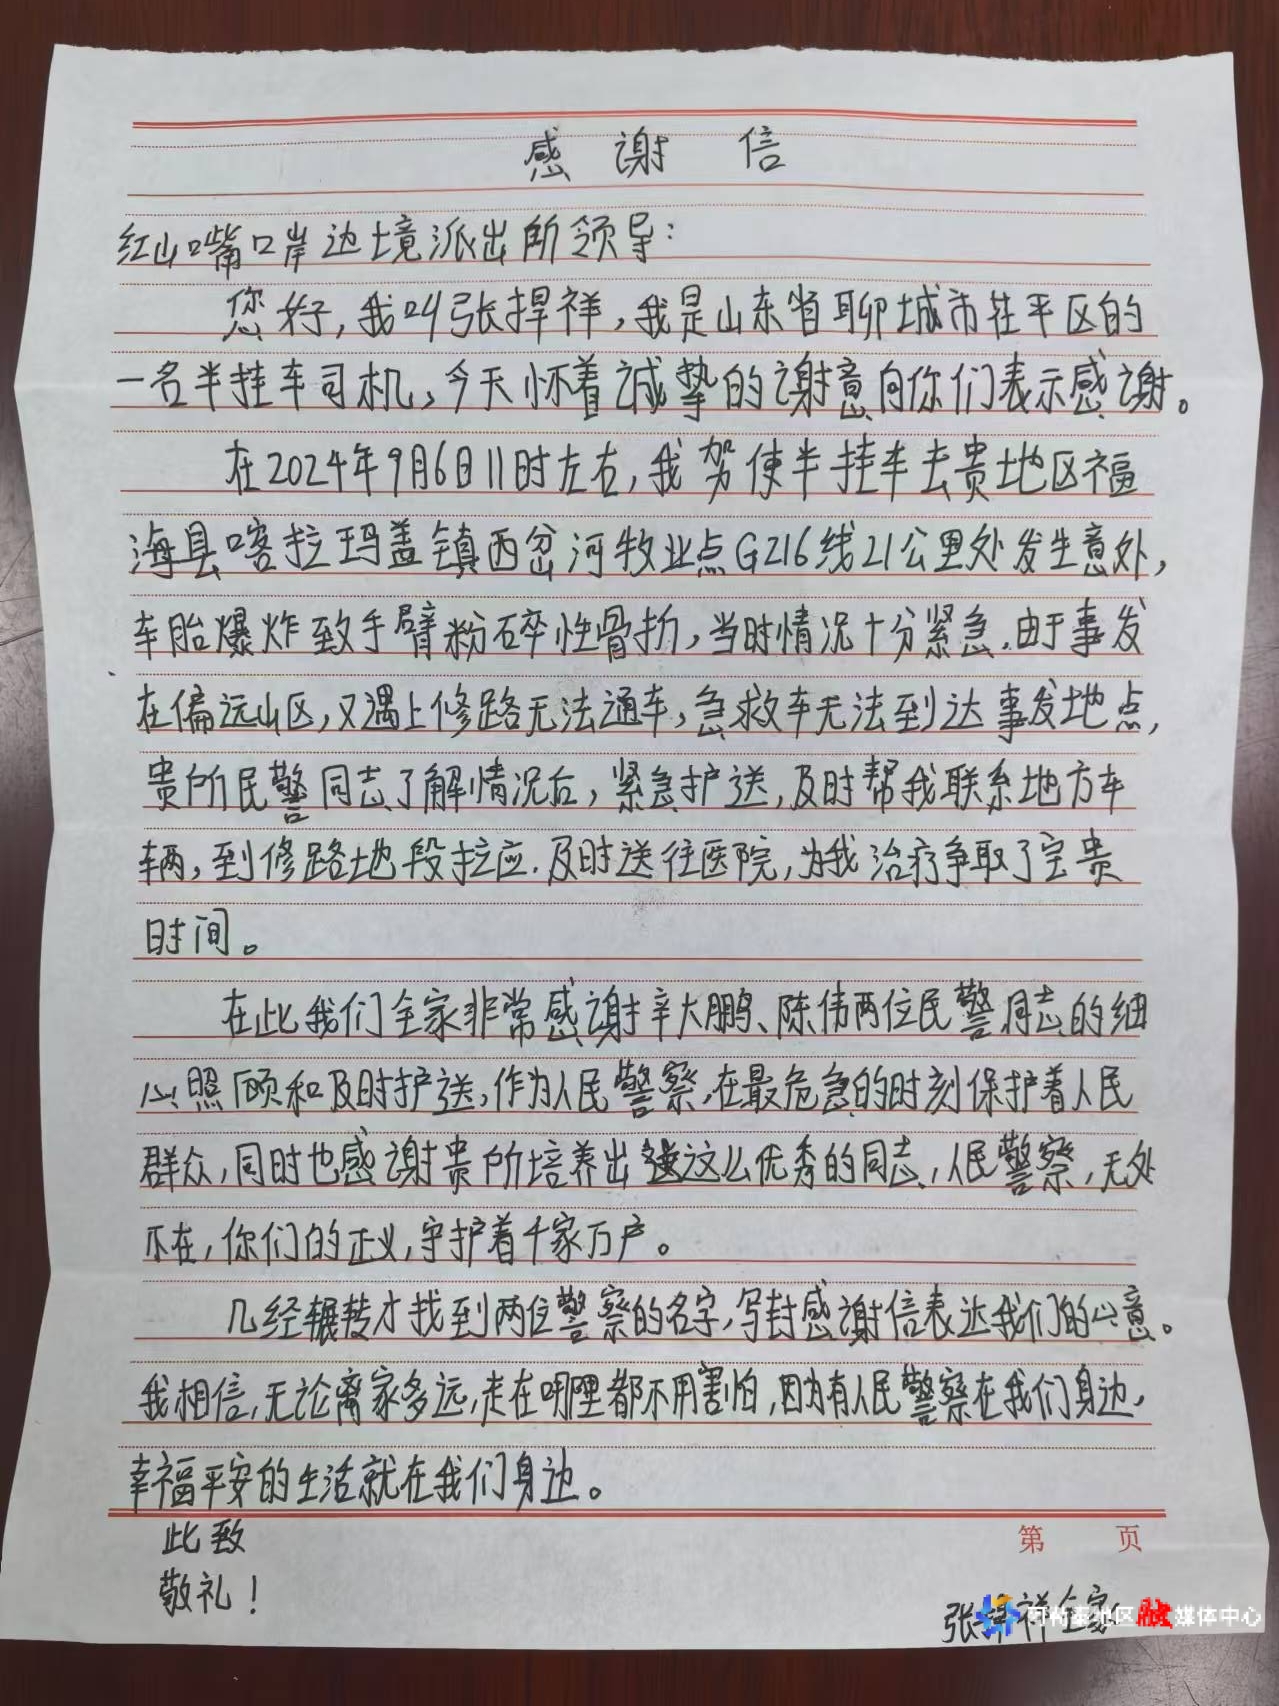 感谢信
红山嘴口岸边境派出所领导：
您好，我叫张捍祥，我是山东省聊城市茌平区的
一名半挂车司机，今天怀着诚挚的谢意向你们表示感谢。
在2024年9月6日11时左右，我驾使半挂车去贵地区福
海县喀拉玛盖镇西岔河牧业点G216线21公里处发生意外，
车胎爆炸致手臂粉碎性骨折，当时情况十分紧急.由于事发
在偏远山区，又遇上修路无法通车，急救车无法到达事发地点，
贵所民警同志了解情况后，紧急护送，及时帮我联系地方车
辆，到修路地段拉应.及时送往医院，为我治疗争取了宝贵
时间。
在此我们全家非常感谢辛大鹏、陈伟两位民警同志的细
心照顾和及时护送，作为人民警察，在最危急的时刻保护着人民
群众，同时也感谢贵所培养出这么优秀的同志，人民警察，无处
不在，你们的正义，守护着千家万户。
几经辗转才找到两位警察的名字，写封感谢信表达我们的心意。
我相信，无论离家多远，走在哪里都不用害怕，因为有人民警察在我们身边，
幸福平安的生活就在我们身边。
此致
敬礼！
第 页
张捍祥全家
阿勒泰地区融媒体中心